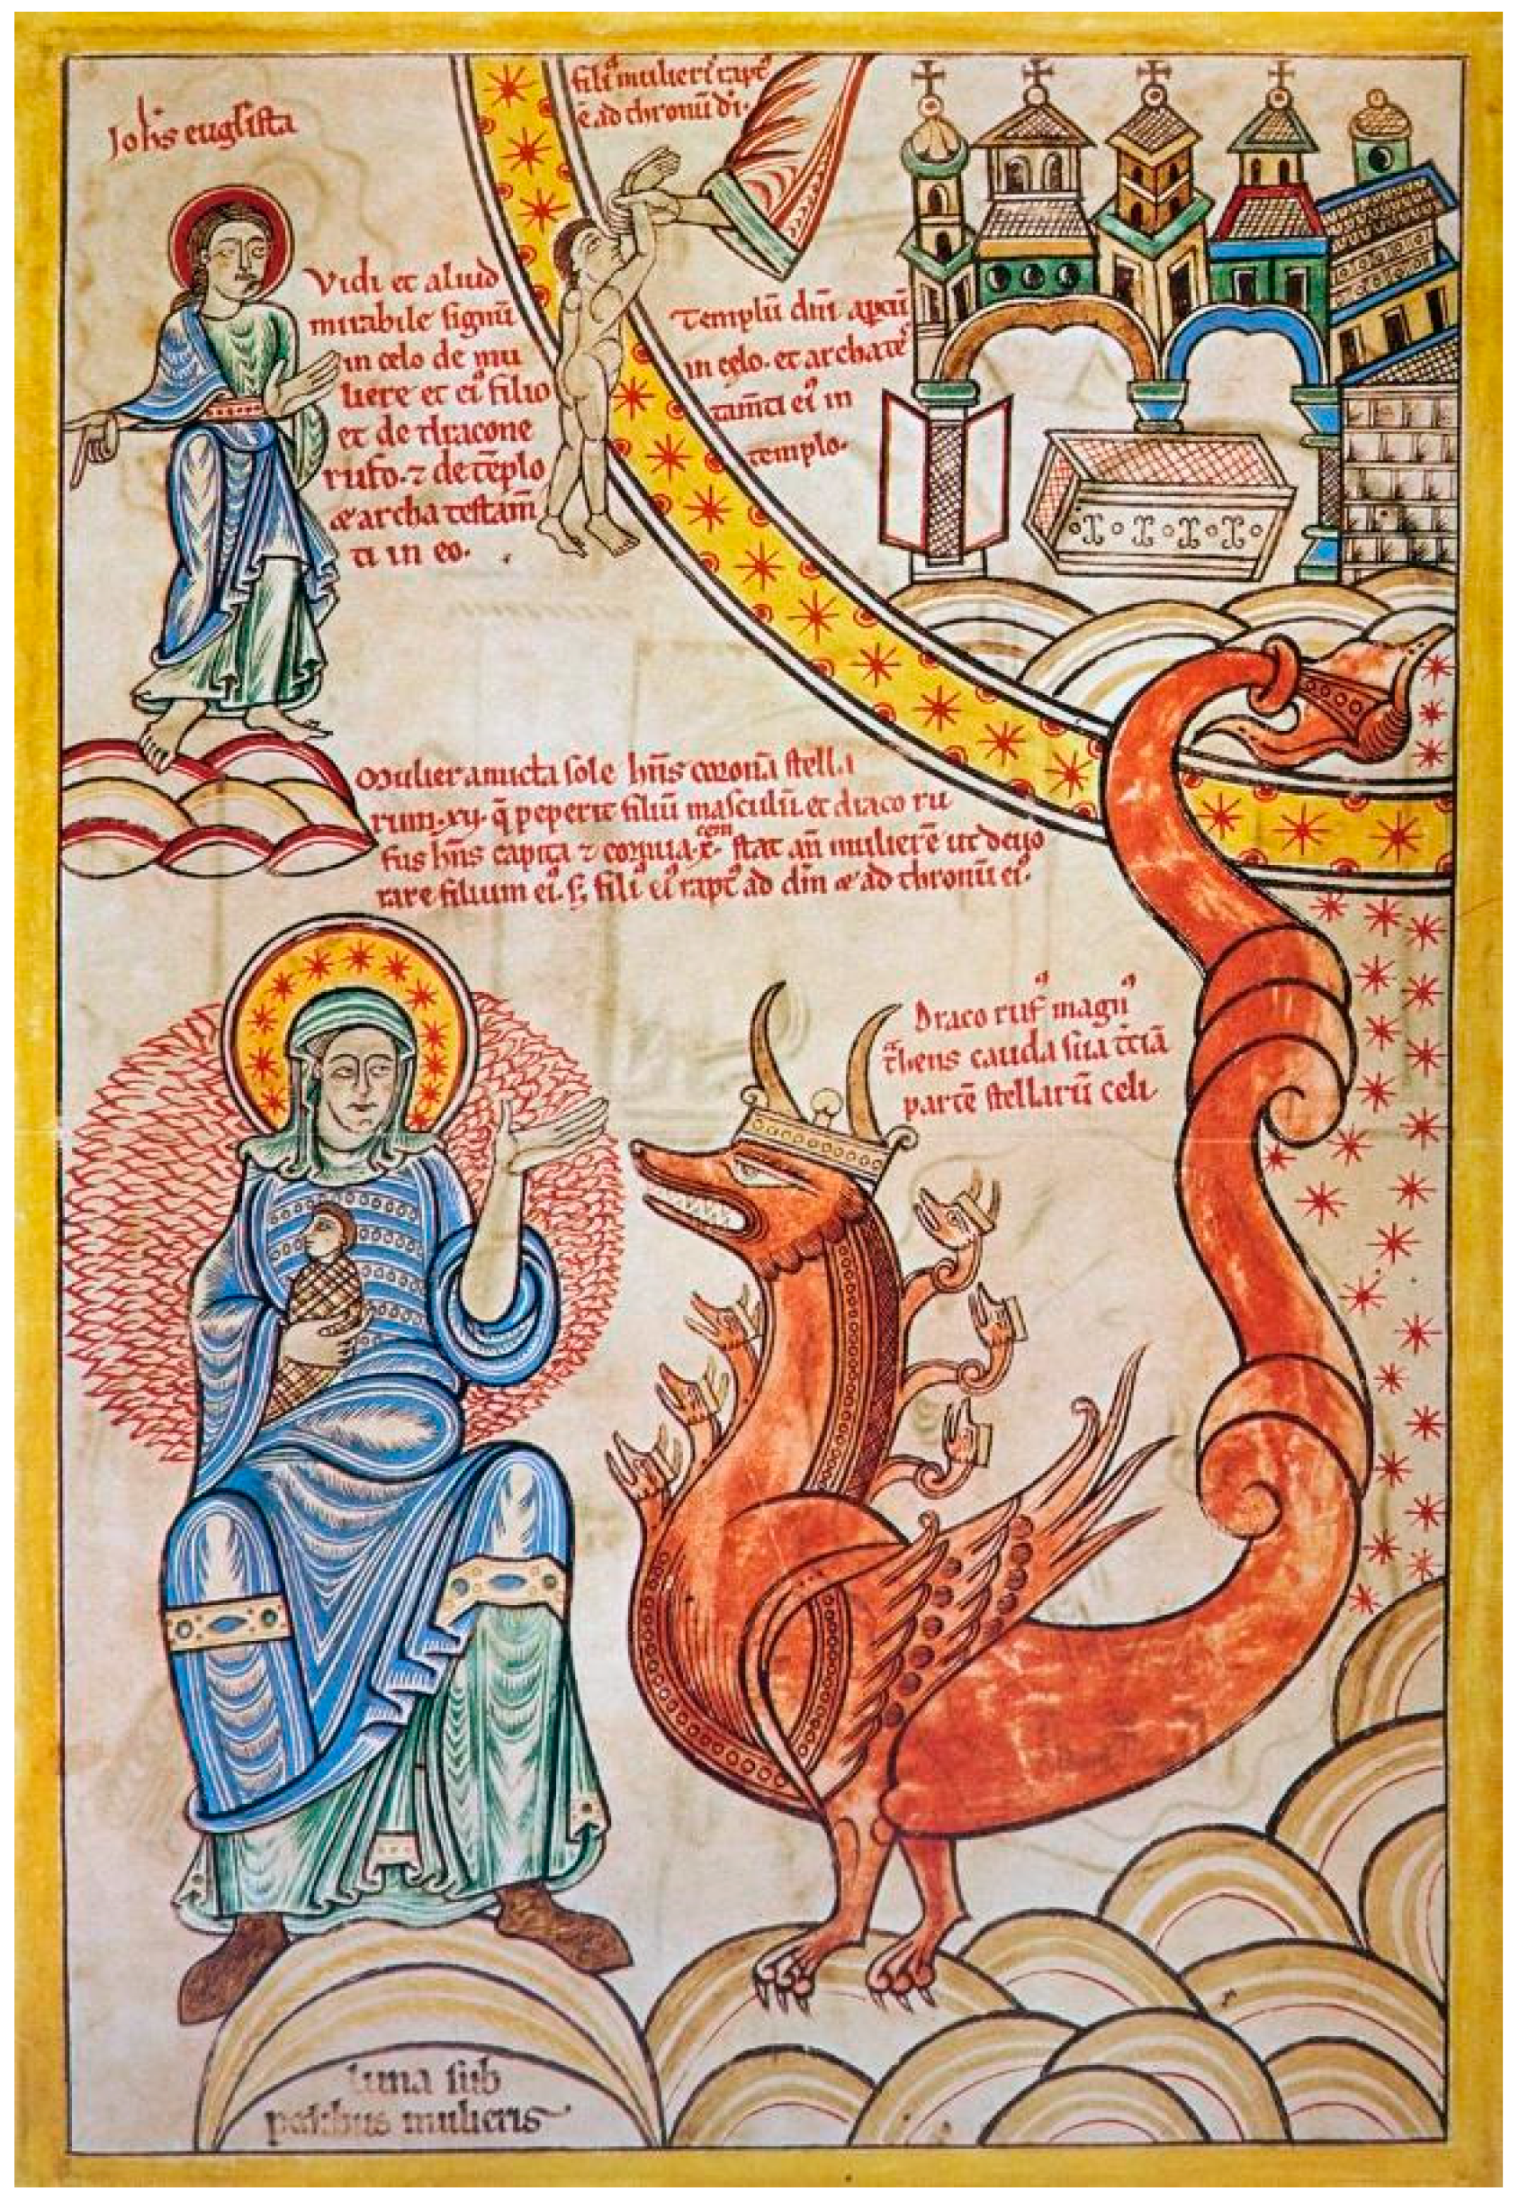 Johs euglista
filiꝰ mulierꝭ raptꝰ
ē ad thronū dī.
Vidi et aliud
mirabile signū
in celo de mu
liere et eiꝰ filio
et de dracone
rufo. ⁊ de tēplo
& archa testam̄
ti in eo.
Templū dn̄i aꝑtū
in celo. et archa tes
tam̄ti eiꝰ in
templo.
Mulier amicta sole hn̄s coronā stella
rum .xij. q̄ peperit filiū masculū. et draco ru
fus hn̄s capita ⁊ cornua .x. stat an̄ mulierē ut deuo
rare filium eiꝰ. s; filiꝰ eiꝰ raptꝰ ad dm̄ & ad thronū eiꝰ.
Draco rufꝰ magnꝰ
t̄hens cauda sua t̄ciā
partē stellarū celi
luna sub
pedibus mulieris